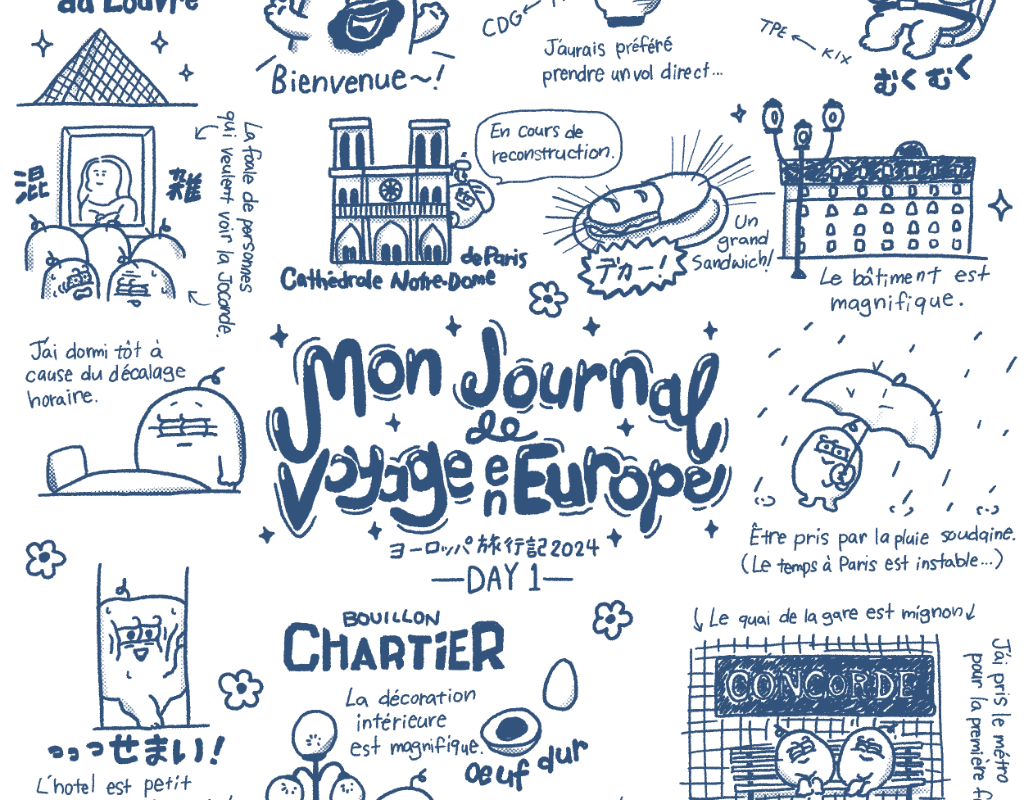 du Louvre
Bienvenue~!
CDG
J'aurais préféré
prendre un vol direct...
TPE ← KIX
むくむく
混雑
La foule de personnes
qui veulent voir la Joconde.
En cours de
reconstruction.
Cathédrale Notre-Dame
de Paris
デカー!
Un
grand
Sandwich!
Le bâtiment est
magnifique.
J'ai dormi tôt à
cause du décalage
horaire.
Mon Journal
de
Voyage en Europe
ヨーロッパ旅行記2024
—DAY 1—
Être pris par la pluie soudaine.
(Le temps à Paris est instable...)
っっっせまい!
L'hotel est petit
BOUILLON
CHARTIER
La décoration
intérieure
est magnifique.
oeuf dur
Le quai de la gare est mignon
CONCORDE
J'ai pris le métro
pour la première